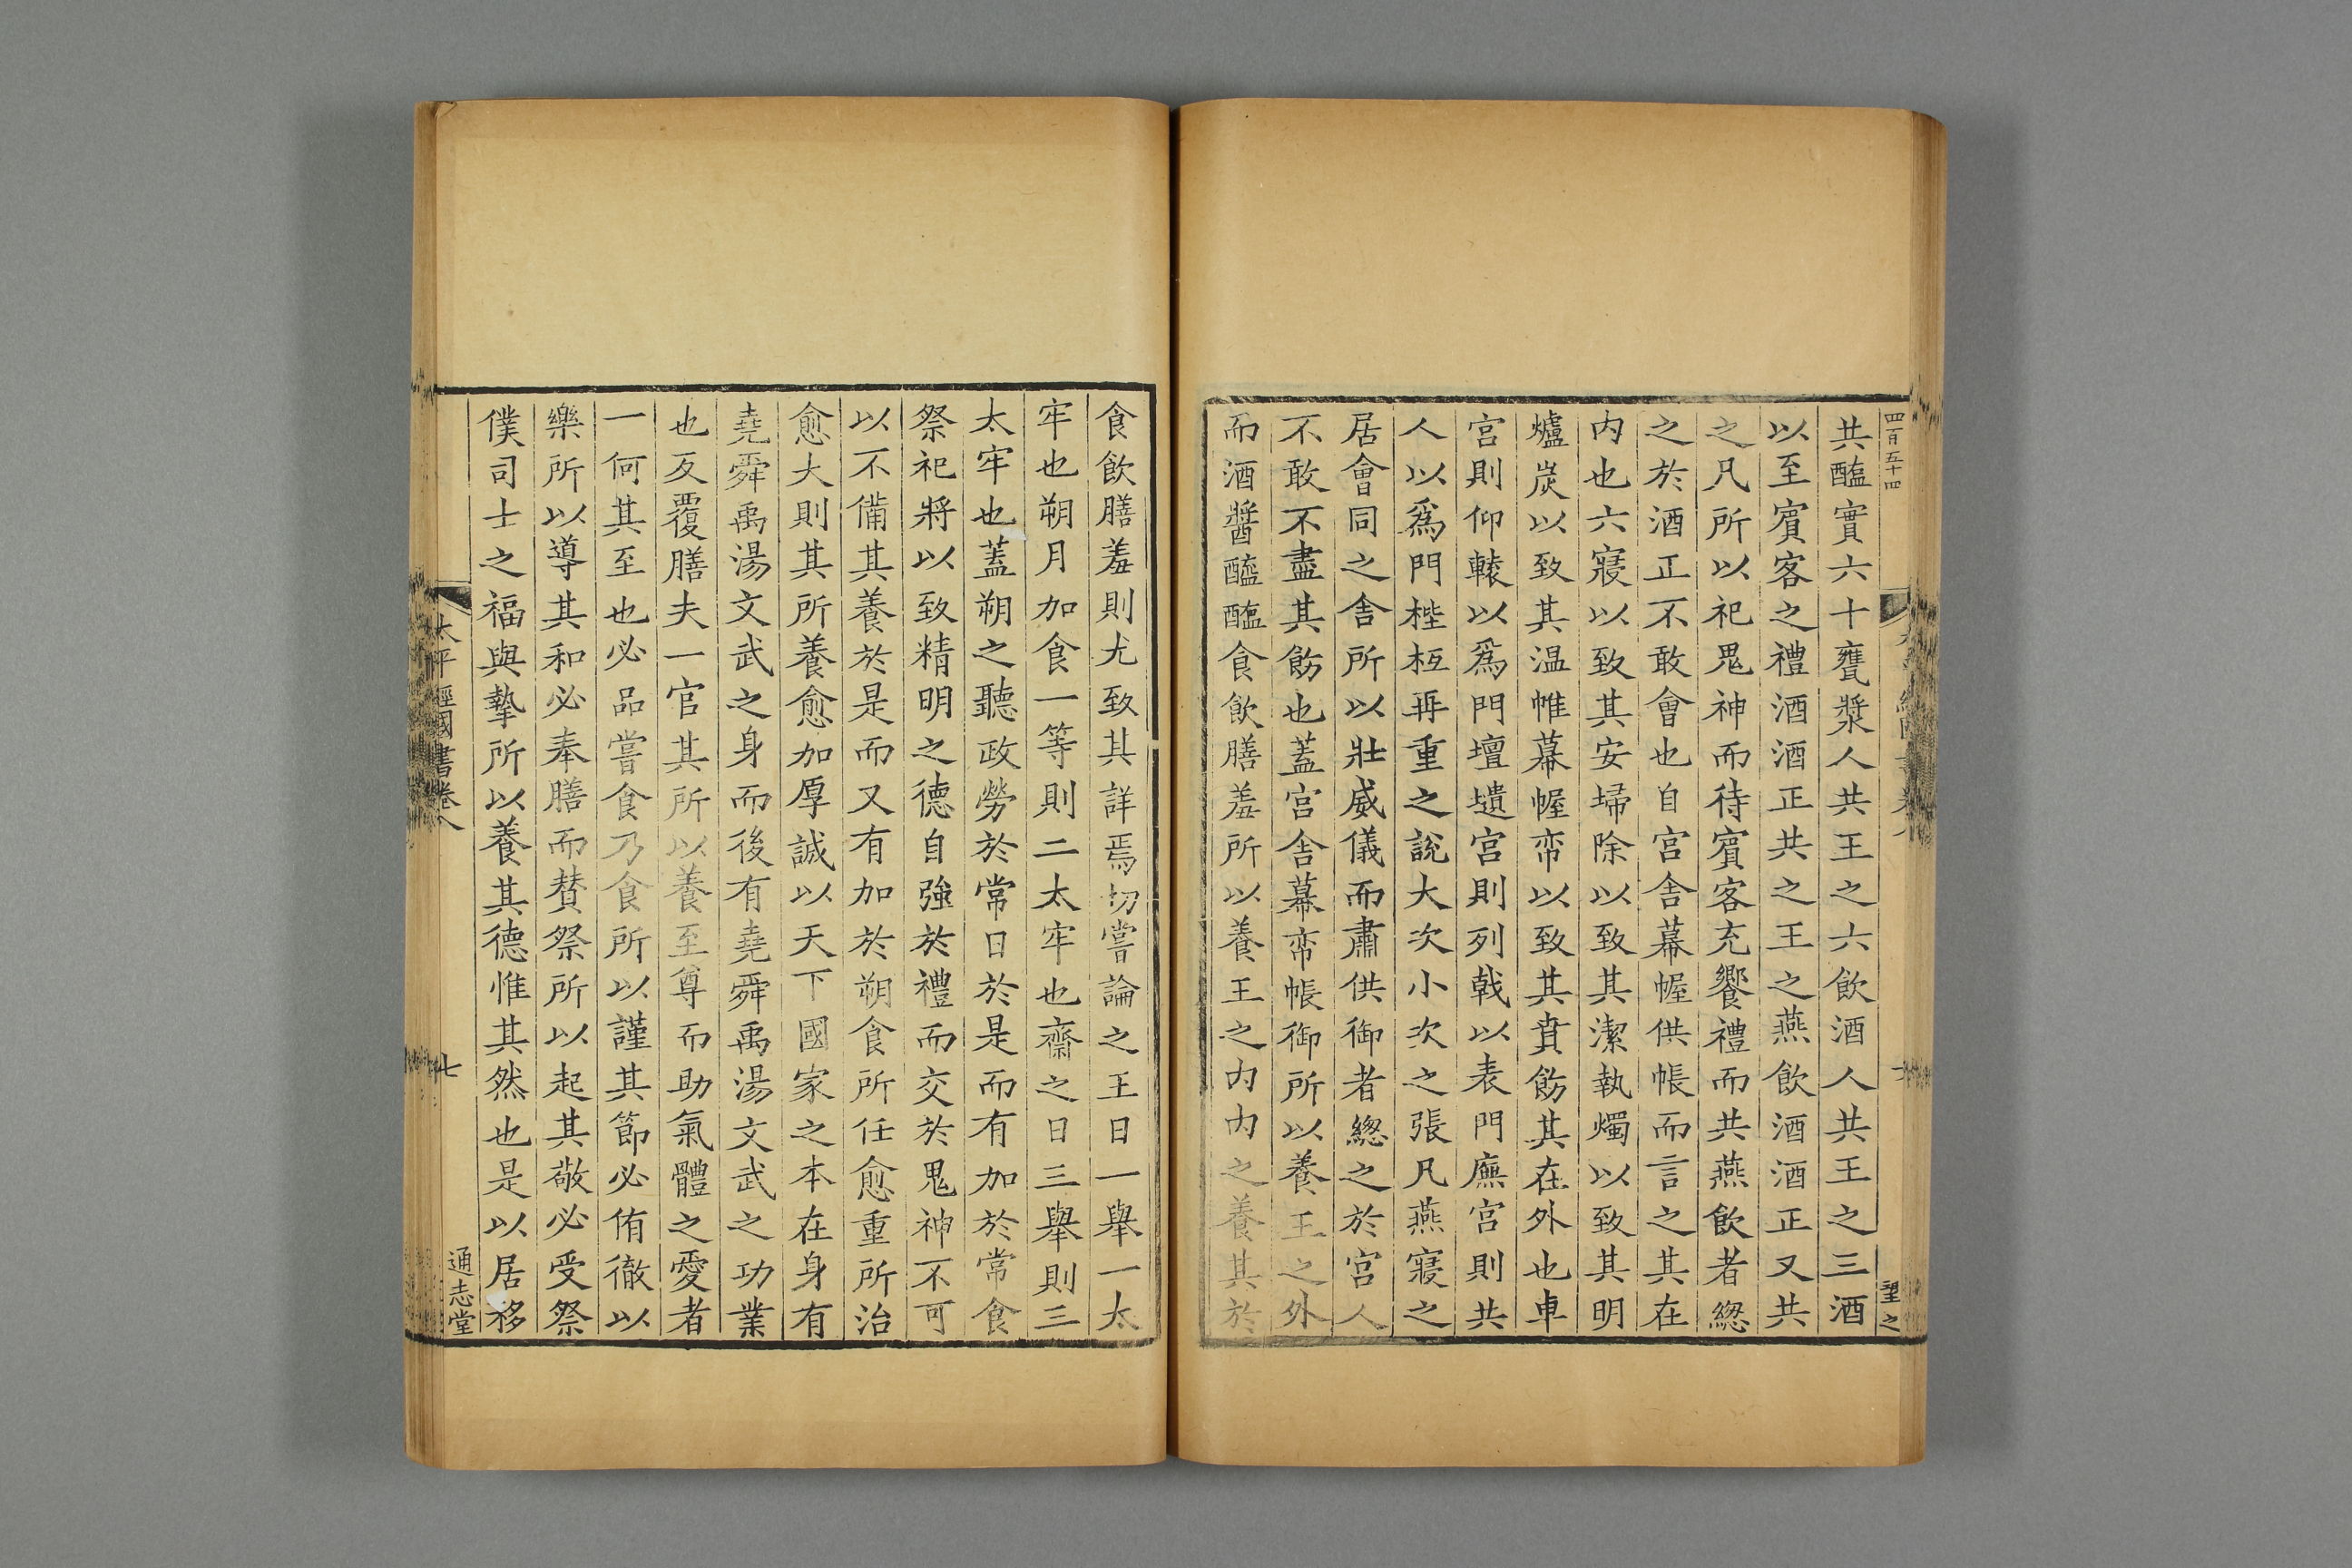 四百五十四
望之
共醢實六十甕漿人共王之六飲酒人共王之三酒
以至賓客之禮酒酒正共之王之燕飲酒酒正又共
之凡所以祀鬼神而待賓客充饗禮而共燕飲者緫
之於酒正不敢會也自宫舎幕幄供帳而言之其在
内也六寢以致其安埽除以致其潔執燭以致其明
爐炭以致其温帷幕幄帟以致其賁飭其在外也車
宫則仰轅以爲門壇壝宫則列戟以表門廡宫則共
人以爲門梐枑再重之說大次小次之張凡燕寢之
居會同之舎所以壯威儀而肅供御者緫之於宫人
不敢不盡其飭也蓋宫舎幕帟帳御所以養王之外
而酒醬醯醢食飲膳羞所以養王之内内之養其於
食飲膳羞則尤致其詳焉切嘗論之王日一舉一太
牢也朔月加食一等則二太牢也齋之日三舉則三
太牢也蓋朔之聽政勞於常日於是而有加於常食
祭祀將以致精明之德自強於禮而交於鬼神不可
以不備其養於是而又有加於朔食所任愈重所治
愈大則其所養愈加厚誠以天下國家之本在身有
堯舜禹湯文武之身而後有堯舜禹湯文武之功業
也反覆膳夫一官其所以養至尊而助氣體之愛者
一何其至也必品嘗食乃食所以謹其節必侑徹以
樂所以導其和必奉膳而賛祭所以起其敬必受祭
僕司士之福與摯所以養其德惟其然也是以居移
太平經國書卷八
七
通志堂